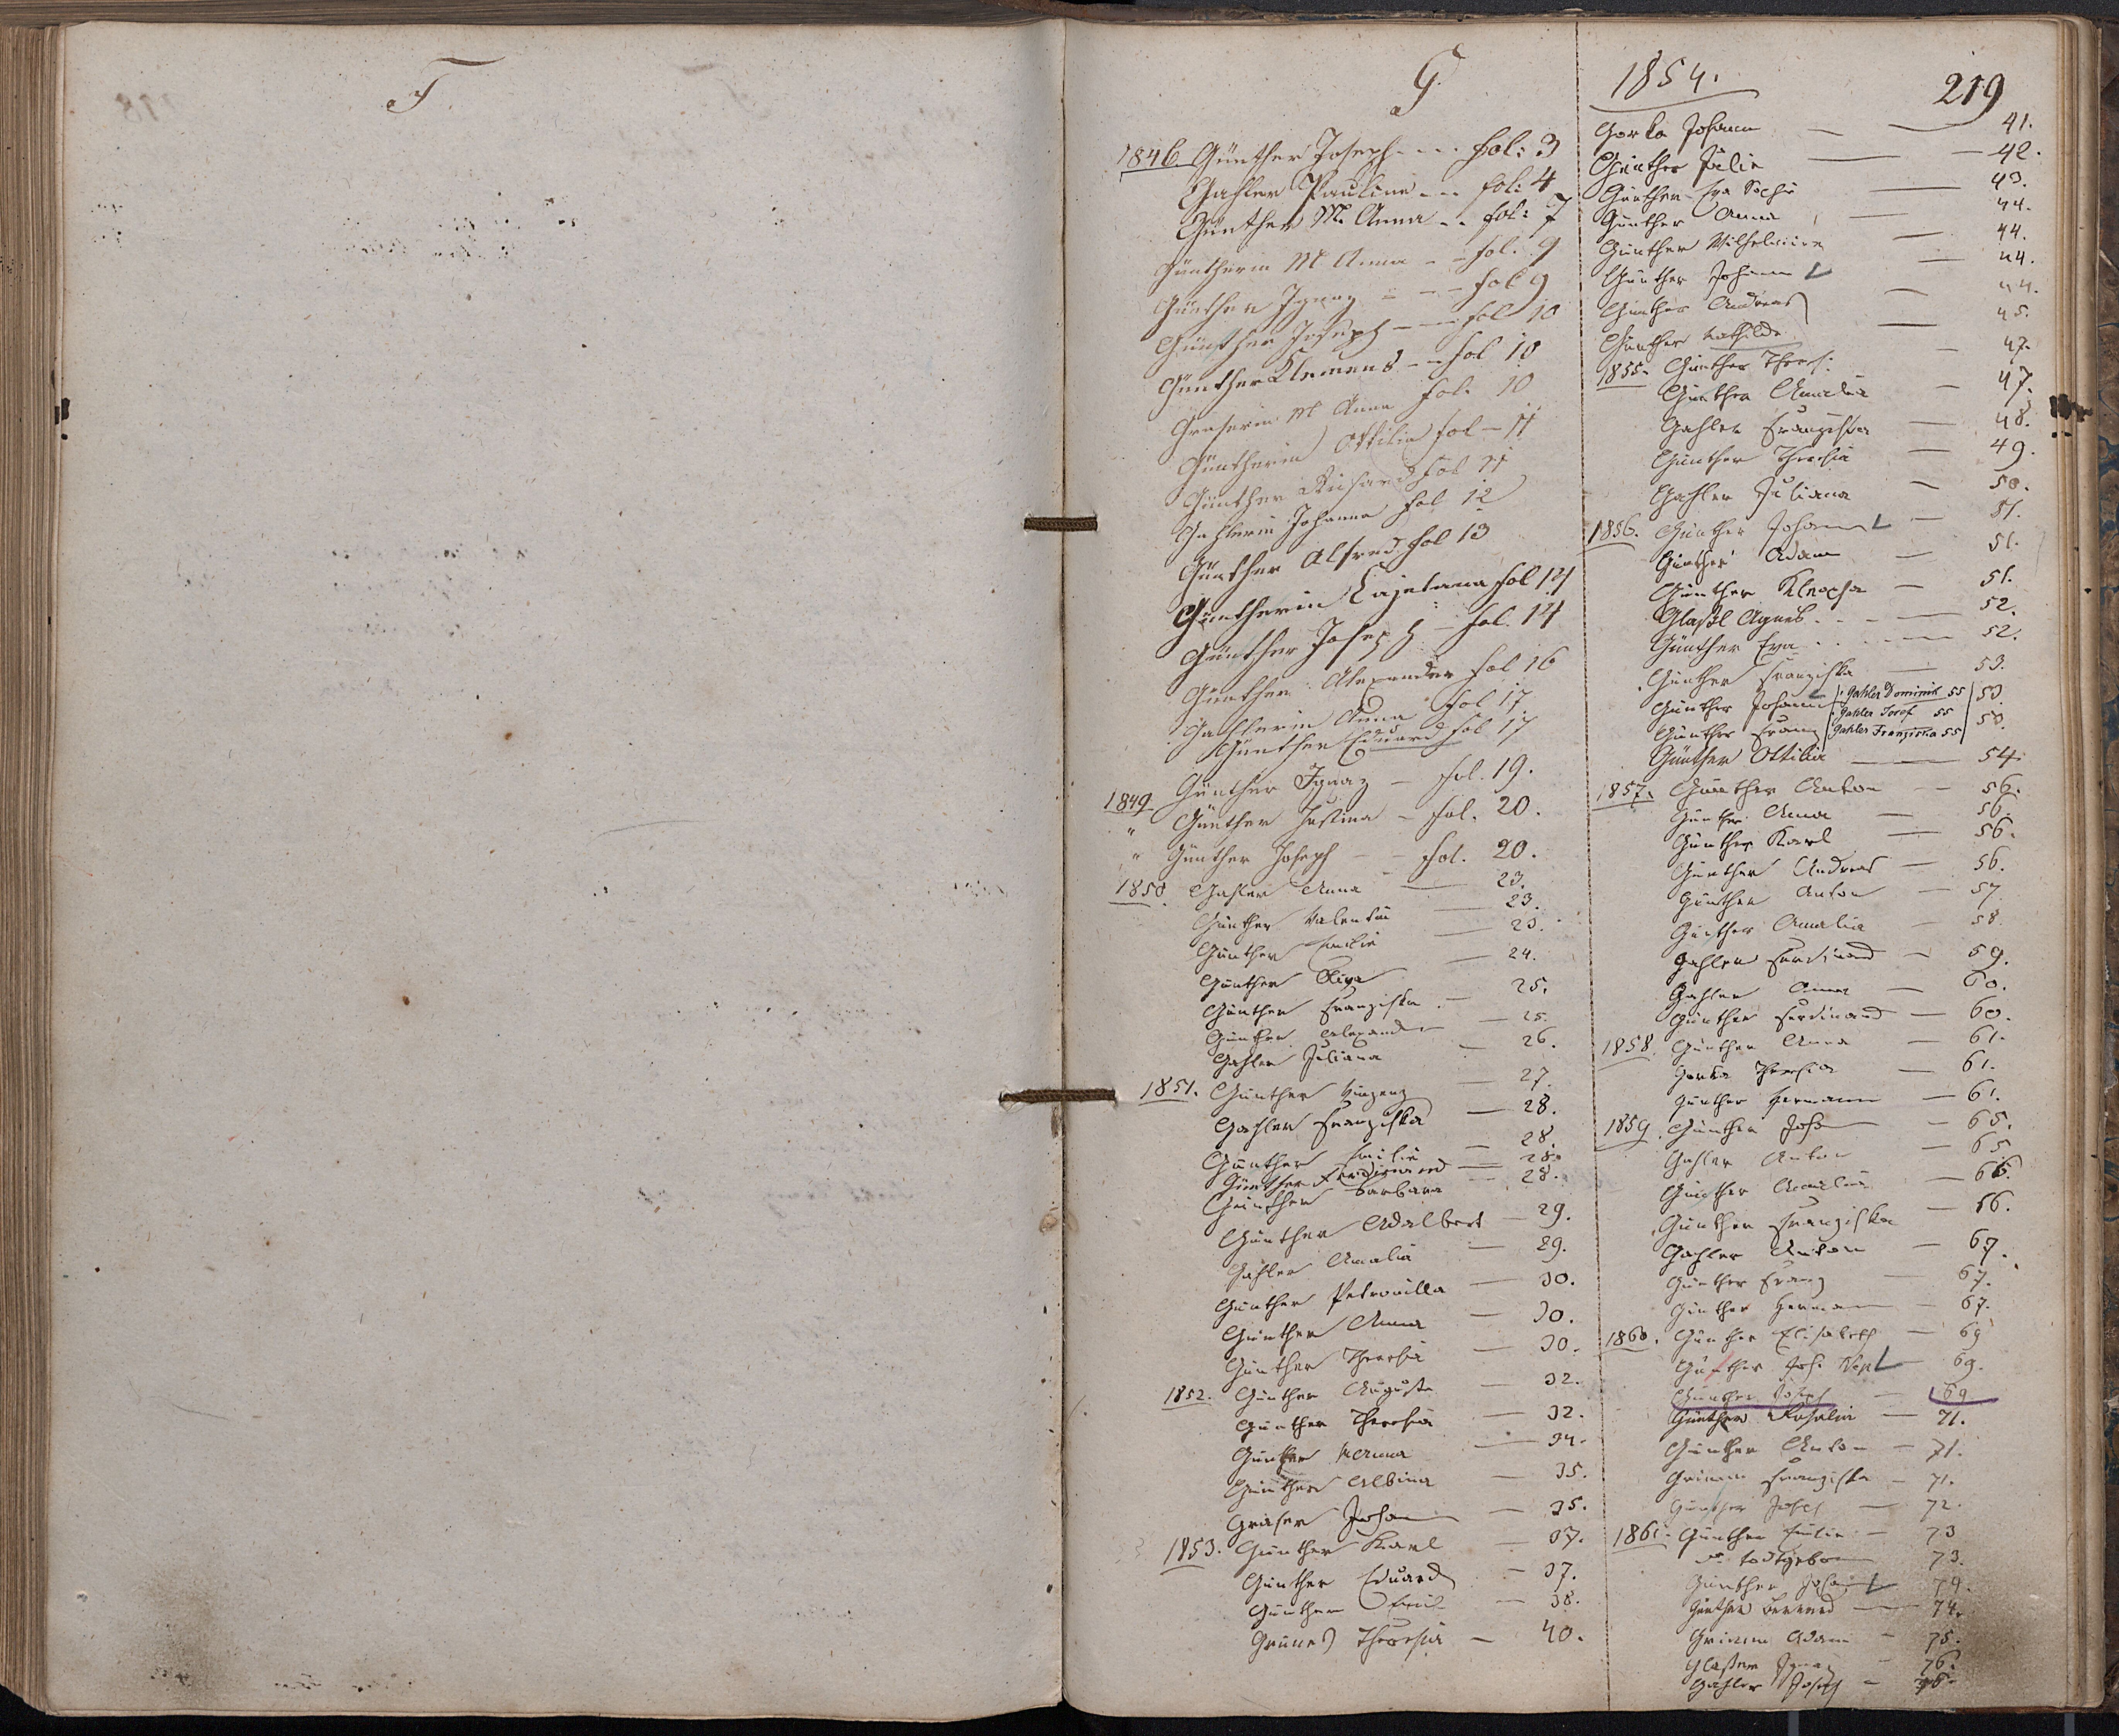 F.
G.
1846. Günther Joseph - - - fol: 3
Gahler Pauline - - fol: 4
Günther M. Anna - - fol: 7
Güntherin M Anna - - fol. 9
Günther Ignaz - - - fol 9
Günther Joseph - - fol 10
Günther Klemens - - fol 10
Graserin M Anna fol. 10
Güntherin Ottilia fol - 11
Günther Richard fol 11
Gahlerin Johanna fol 12
Günther Alfred fol 13
Güntherin Cajetana fol 14
Günther Joseph - fol. 14
Günther Alexander fol 16
Gahlerin Anna fol 17
Günther Eduard fol 17
Günther Ignaz - fol. 19.
1849 " Günther Justina - fol. 20.
" Günther Joseph - - fol. 20.
1850. Gahler Anna — 23.
Günther Valentin — 23.
Günther Emilie — 23.
Günther — 24.
Günther Franziska — 25.
Günther Alexander — 25.
Gahler Juliana — 26.
1851. Günther Vinzenz — 27.
Gahler Franziska — 28.
Günther Emilie — 28.
Günther Ferdinand — 28.
Günther Barbara — 28.
Günther Adalbert — 29.
Gahler Amalia — 29.
Günther Petronilla — 30.
Günther Anna — 30.
Günther Theresia — 30.
1852. Günther Auguste — 32.
Günther Theresia — 32.
Günther Anna — 34.
Günther Albina — 35.
Graser Johann — 35.
1853. Günther Karl — 37.
Günther Eduard — 37.
Günther Emil — 38.
Grünes Theresia — 40.
1854.
219
Gorka Johann — — 41.
Günther Julie — — 42.
Günther Eva Sophie — 43.
Günther Anna — 44.
Günther Wilhelmine — 44.
Günther Johann — 44.
Günther Andreas — 44.
Günther Mathilde — 45.
1855. Günther Theres: — 47.
Günther Amalia — 47.
Gahler Franziska — 48.
Günther Theresia — 49.
Gahler Juliana — 50.
1856. Günther Johann — 51.
Günther Adam — 51.
Günther — 51.
Glaßl Agnes - - — 52.
Günther Eva - - — 52.
Günther Franziska — 53.
Günther Johann 53.
Günther Franz 53.
Gahler Dominik 55
Gahler Josef 55
Gahler Franziska 55
Günther Ottilia — 54.
1857. Günther Anton — 56.
Günther Anna — 56.
Günther Karl — 56.
Günther Andreas — 56.
Günther Anton — 57
Günther Amalia — 58.
Gahler Ferdinand — 59.
Gahler Anna — 60.
Günther Ferdinand — 60.
1858. Günther Anna — 61.
Gorka Theresia — 61.
Günther Hermann — 61.
1859. Günther Johann — 65.
Gahler Anton — 65.
Günther Amalia — 66.
Günther Franziska — 66.
Gahler Anton — 67.
Günther Franz — 67.
Günther Hermann — 67.
1860. Günther Elisabeth — 69
Günther Joh. Nep — 69.
Günther Joseph — 69
Günther Rosalia — 71.
Günther Anton — 71.
Grimm Franziska — 71.
Günther Josef — 72.
1861. Günther Emilie — 73
todtgeboren 73.
Günther Johann 74.
Günther Bernard — 74.
Grimm Adam — 75.
Glaßner Ignaz — 76.
Gahler Joseph — 76.